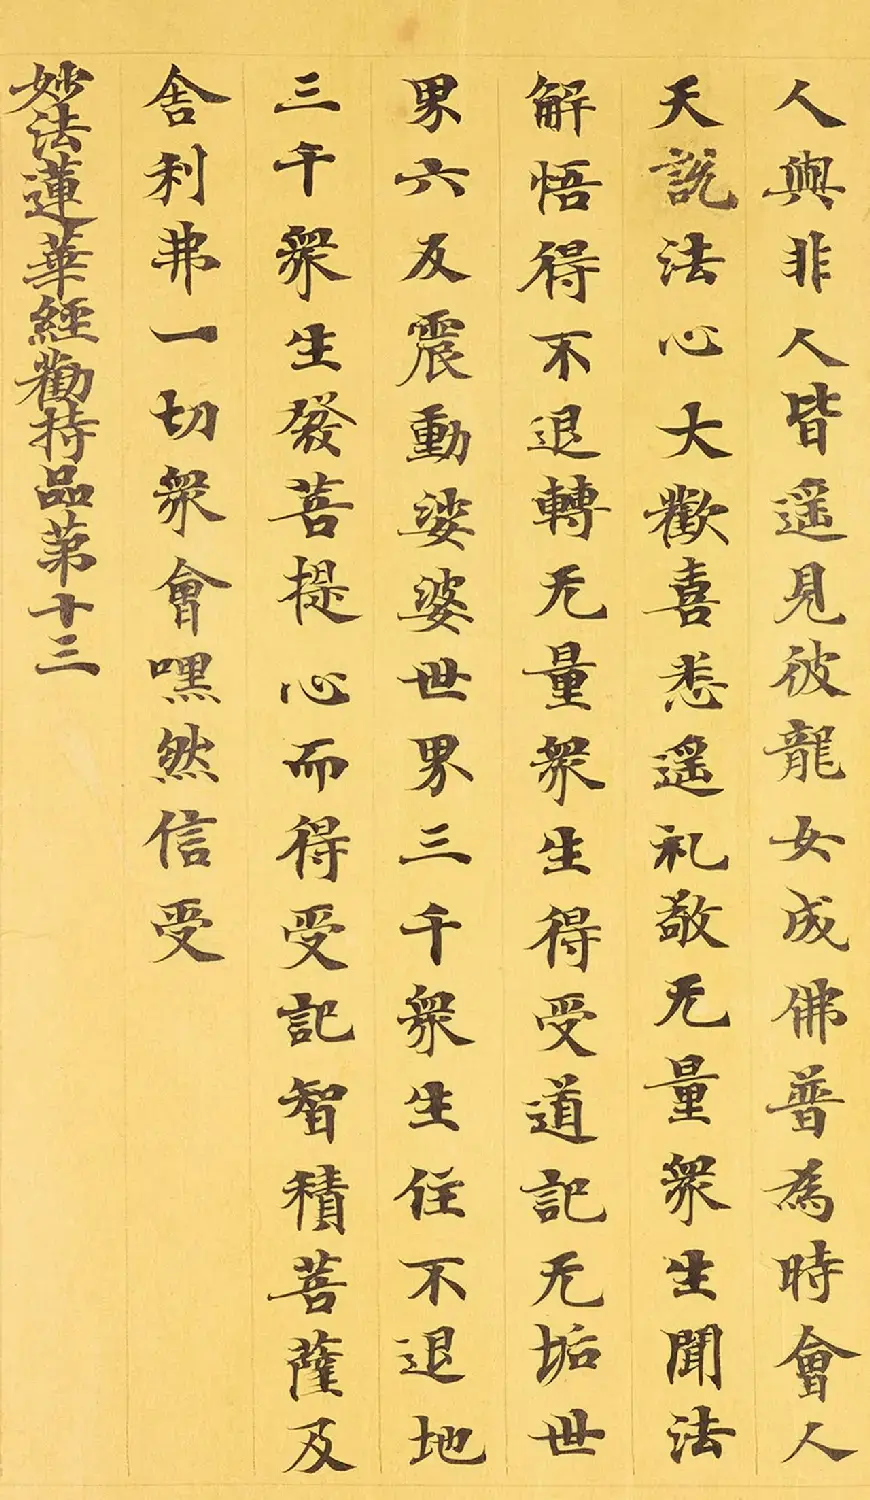 人與非人皆遥見彼龍女成佛普為時會人
天說法心大歡喜悉遥礼敬无量衆生聞法
解悟得不退轉无量衆生得受道記无垢世
界六反震動娑婆世界三千衆生住不退地
三千衆生發菩提心而得受記智積菩薩及
舍利弗一切衆會嘿然信受
妙法蓮華經勸持品第十三